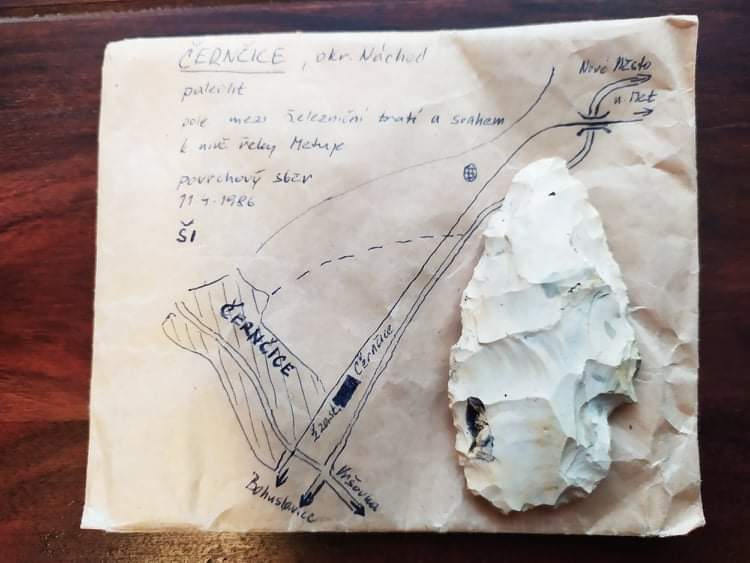 ČERNČICE, okr. Náchod
paleolit
pole mezi železniční tratí a svahem
k nivě řeky Metuje
povrchový sběr
1986
ŠI
Nové Město
n. Met
ČERNČICE
Žzast. Černčice
Bohuslavice
Vršovka